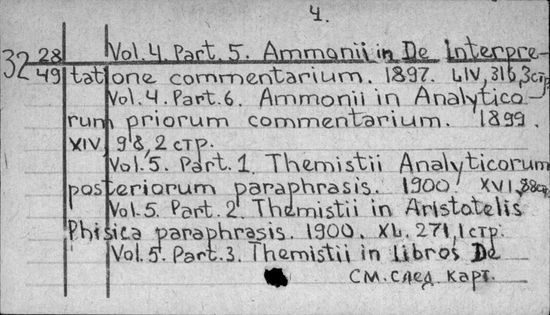 4.
32 28 Vol. 4. Part. 5. Ammonii in De Interpre-
49 tatione commentarium. 1897. LIV, 316, 3 стр.
Vol. 4. Part. 6. Ammonii in Analytico-
rum priorum commentarium. 1899.
XIV, 98, 2 стр.
Vol. 5. Part. 1. Themistii Analyticorum
posteriorum paraphrasis. 1900. XVI, 88 стр.
Vol. 5. Part. 2. Themistii in Aristotelis
Phisica paraphrasis. 1900. XL, 271, 1 стр.
Vol. 5. Part. 3. Themistii in libros De
см. след. карт.